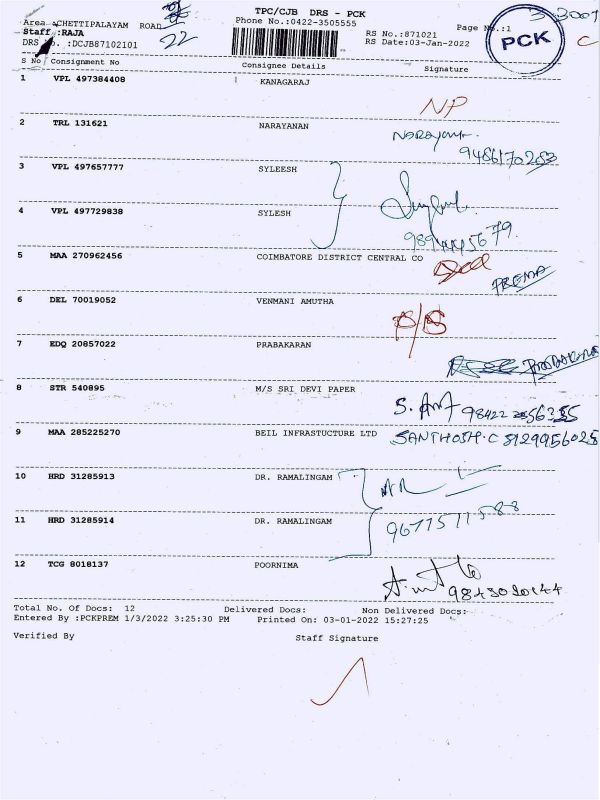 TPC/CJB DRS - PCK
Area :CHETTIPALAYAM ROAD Phone No.:0422-3505555 Page No.:1
Staff :RAJA RS No.:871021
DRS No. :DCJB87102101 22 RS Date:03-Jan-2022 PCK C
S No Consignment No Consignee Details Signature
1 VPL 497384408 KANAGARAJ
NP
2 TRL 131621 NARAYANAN
3 VPL 497657777 SYLEESH
4 VPL 497729838 SYLESH
5 MAA 270962456 COIMBATORE DISTRICT CENTRAL CO
PREMA
6 DEL 70019052 VENMANI AMUTHA
7 EDQ 20857022 PRABAKARAN
8 STR 540895 M/S SRI DEVI PAPER
9 MAA 285225270 BEIL INFRASTUCTURE LTD SANTHOSH.C 8129956025
10 HRD 31285913 DR. RAMALINGAM
11 HRD 31285914 DR. RAMALINGAM
12 TCG 8018137 POORNIMA
Total No. Of Docs: 12 Delivered Docs: Non Delivered Docs:
Entered By :PCKPREM 1/3/2022 3:25:30 PM Printed On: 03-01-2022 15:27:25
Verified By Staff Signature